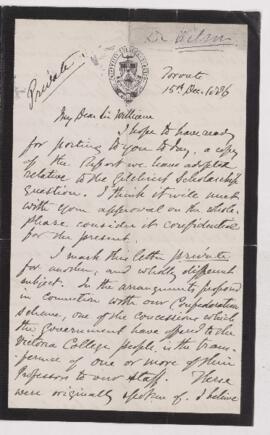 Dr Wilson
Private
Toronto
15th Dec. 1886
My Dear Sir William
I hope to have ready
for posting to you to day, a copy
of the Report we have adopted
relative to the Gilchrist Scholarship
question. I think it will meet
with your approval on the whole.
Please consider it confidential
for the present.
I mark this letter private
for another, and wholly different
subject. In the arrangements proposed
in connection with our Confederation
scheme, one of the concessions which
the government have offered to the
Victoria College people, is the trans-
ference of one or more of their
Professors to our staff. These
were originally spoken of. I believe